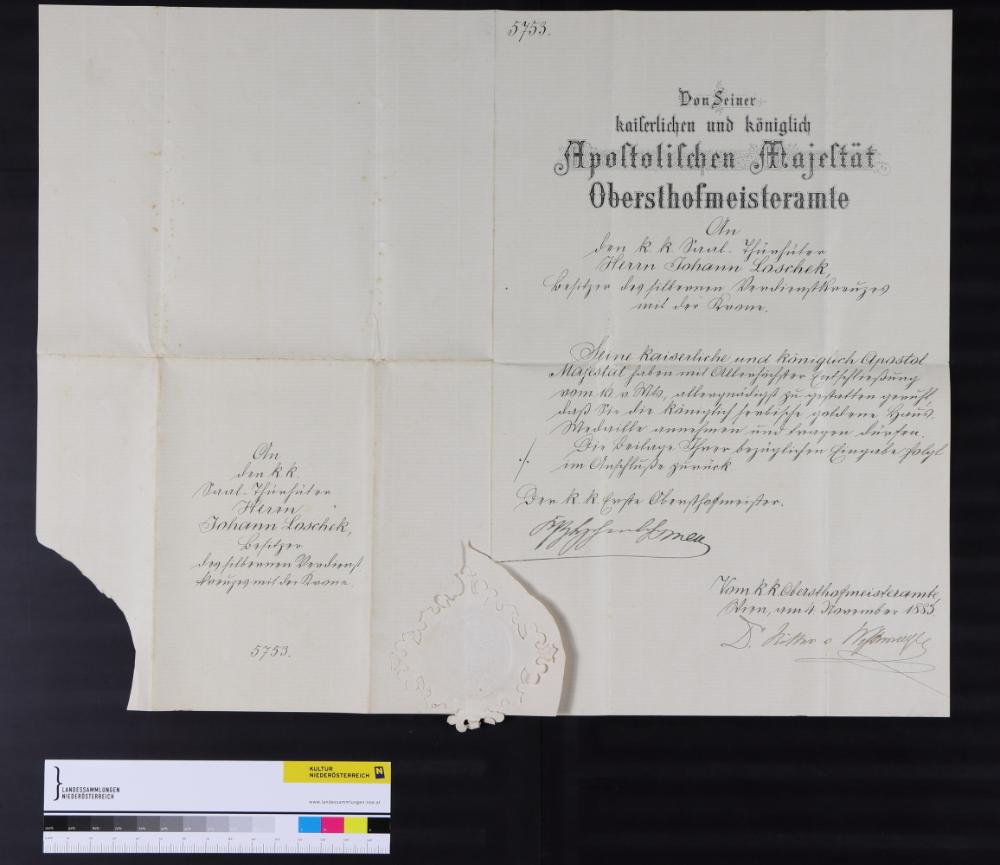 5753.
Von Seiner
kaiserlichen und königlich
Apostolischen Majestät
Obersthofmeisteramte
An
den k. k. Saal-Thürhüter
Herrn Johann Loschek,
Besitzer des silbernen Verdienstkreuzes
mit der Krone.
Seine kaiserliche und königlich Apostol.
Majestät haben mit Allerhöchster Entschließung
vom v. Mts, allergnädigst zu gestatten geruht,
daß Sie die königlich serbische goldene Haus-
Medaille annehmen und tragen dürfen.
Die Beilage Ihrer bezüglichen Eingabe folgt
./.
im Anschluße zurück
Der k. k. Erste Obersthofmeister.
Vom k. k. Obersthofmeisteramte,
Wien, am 4 November 1885
D. Ritter v.
An
den k k
Saal-Thürhüter
Herrn
Johann Loschek,
Besitzer
des silbernen Verdienst
kreuzes mit der Krone.
5753.
LANDESSAMMLUNGEN
NIEDERÖSTERREICH
KULTUR
NIEDERÖSTERREICH
www.landessammlungen-noe.at